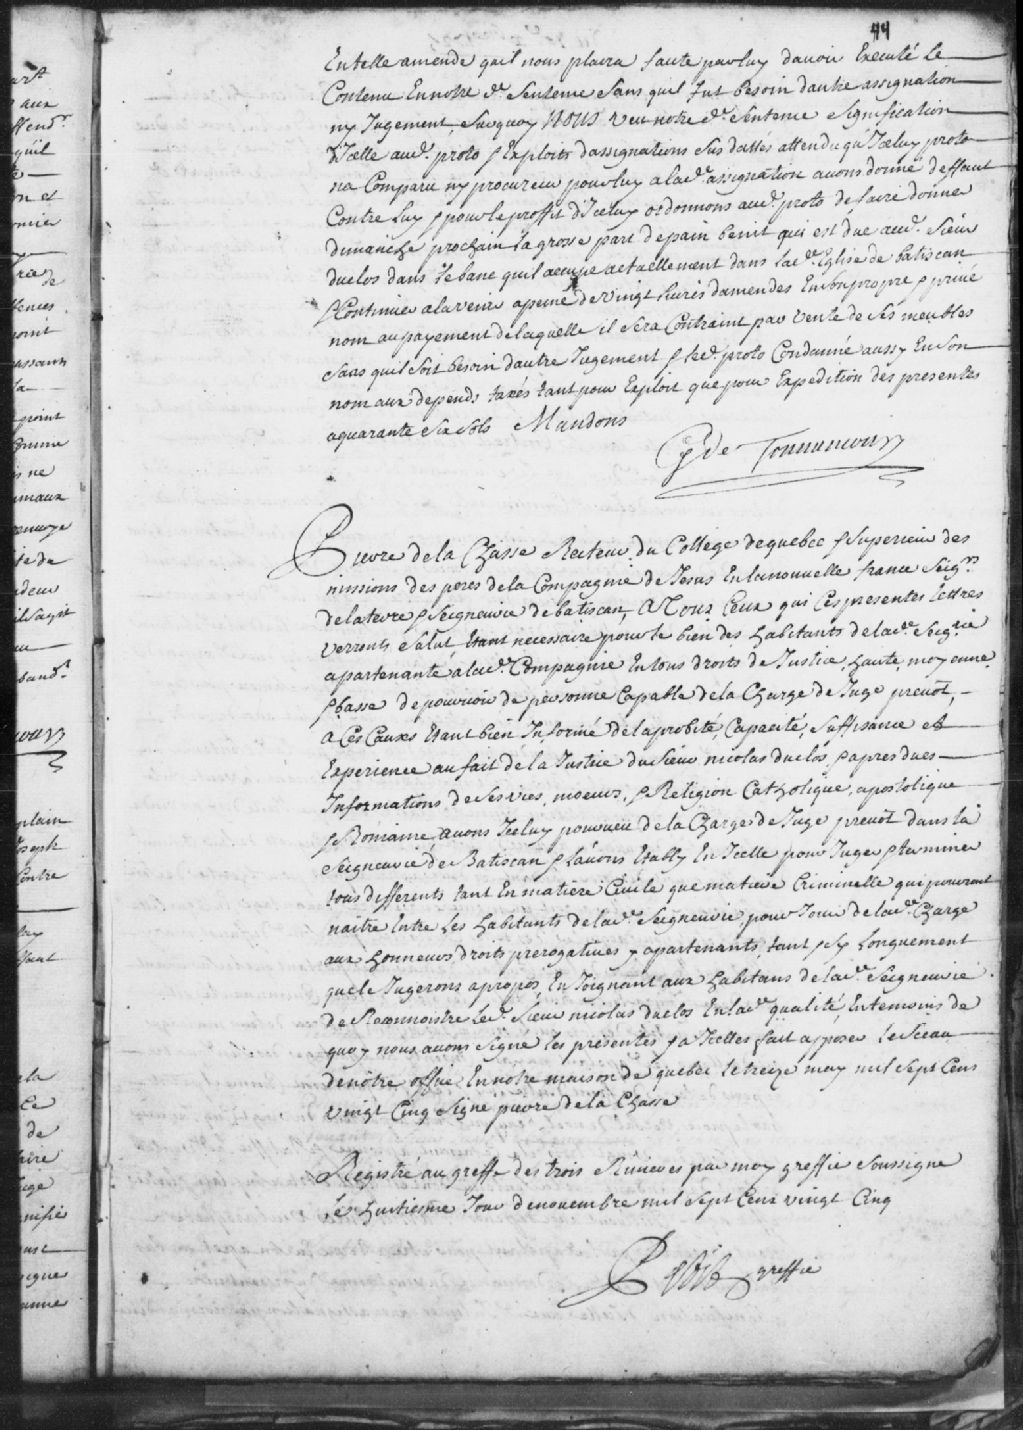 44
En telle amende quil nous plaira faute par luy davoir Executé le
Contenu En notre de. Sentense Sans quil fut besoin dautre assignation
ny Jugement, Surquoy NOUS veu notre de. Sentense Signification
d'Icelle aud. proto & Exploits dassignations Sus dattés attendu qu'Iceluy proto
na Comparu ny procureur pour luy a lade. assignation avons donné deffaut
Contre Luy & pour le proffit d'Iceluy ordonnons aud. proto de faire donner
dimanche prochain la grosse part de pain benit qui est due aud. Sieur
duclos dans le banc quil accupe actuellement dans lade. Eglise de batiscan
& Continuer alavenir apeine de vingt livres damendes En son propre & privé
nom au payement de laquelle il Sera Contraint par vente de Ses meubles
Sans quil Soit besoin dautre Jugement & led. proto Condamné aussy En Son
nom aux depends taxés tant pour Exploit que pour Expedition des presentes
a quarante Six Sols Mandons
G de Tonnancour
Pierre de la Chasse Recteur du College de quebec & Superieur des
missions des peres de la Compagnie de Jesus En la nouvelle france Seigrs.
de la terre & Seigneurie de batiscan, A Tous Ceux qui Ces presentes Lettres
verronts Salut, Etant necessaire pour le bien des habitants de lade. Seigrie
apartenante a lade. Compagnie En tous droits de Justice, haute, moyenne
& basse de pourvoir de personne Capable de la Charge de Juge prevot,
A Ces Causes Etant bien Informé de la probité, Capacité, Suffisance et
Experience au fait de la Justice du Sieur nicolas duclos, & apres dues
Informations de Ses vies, moeurs, & Religion Catholique, apostolique
& Romaine, avons Iceluy pourveu de la Charge de Juge prevot dans la
Seigneurie de Batiscan & Lavons Etably En Icelle pour Juger & terminer
tous differents tant En matiere Civile que matiere Criminelle qui pourront
naitre Entre Les habitants de lade. Seigneurie pour Jouir de lade. Charge
aux honneurs, droits prerogatives y apartenants, tant & Sy Longuement
que le Jugerons apropos, En Joignant aux habitans de lade. Seigneurie
de Reconnoistre Led. Sieur nicolas duclos En lade. qualité, En temoins de
quoy nous avons Signé les presentes & a Icelles fait apposer le Sceau
de nôtre office En notre maison de quebec le treize may mil Sept Cens
vingt Cinq Signé pierre de la Chasse
Registré au greffe des trois Rivieres par moy greffier Soussigné
Le huitiesme Jour de novembre mil Sept Cens vingt Cinq
Petit greffier